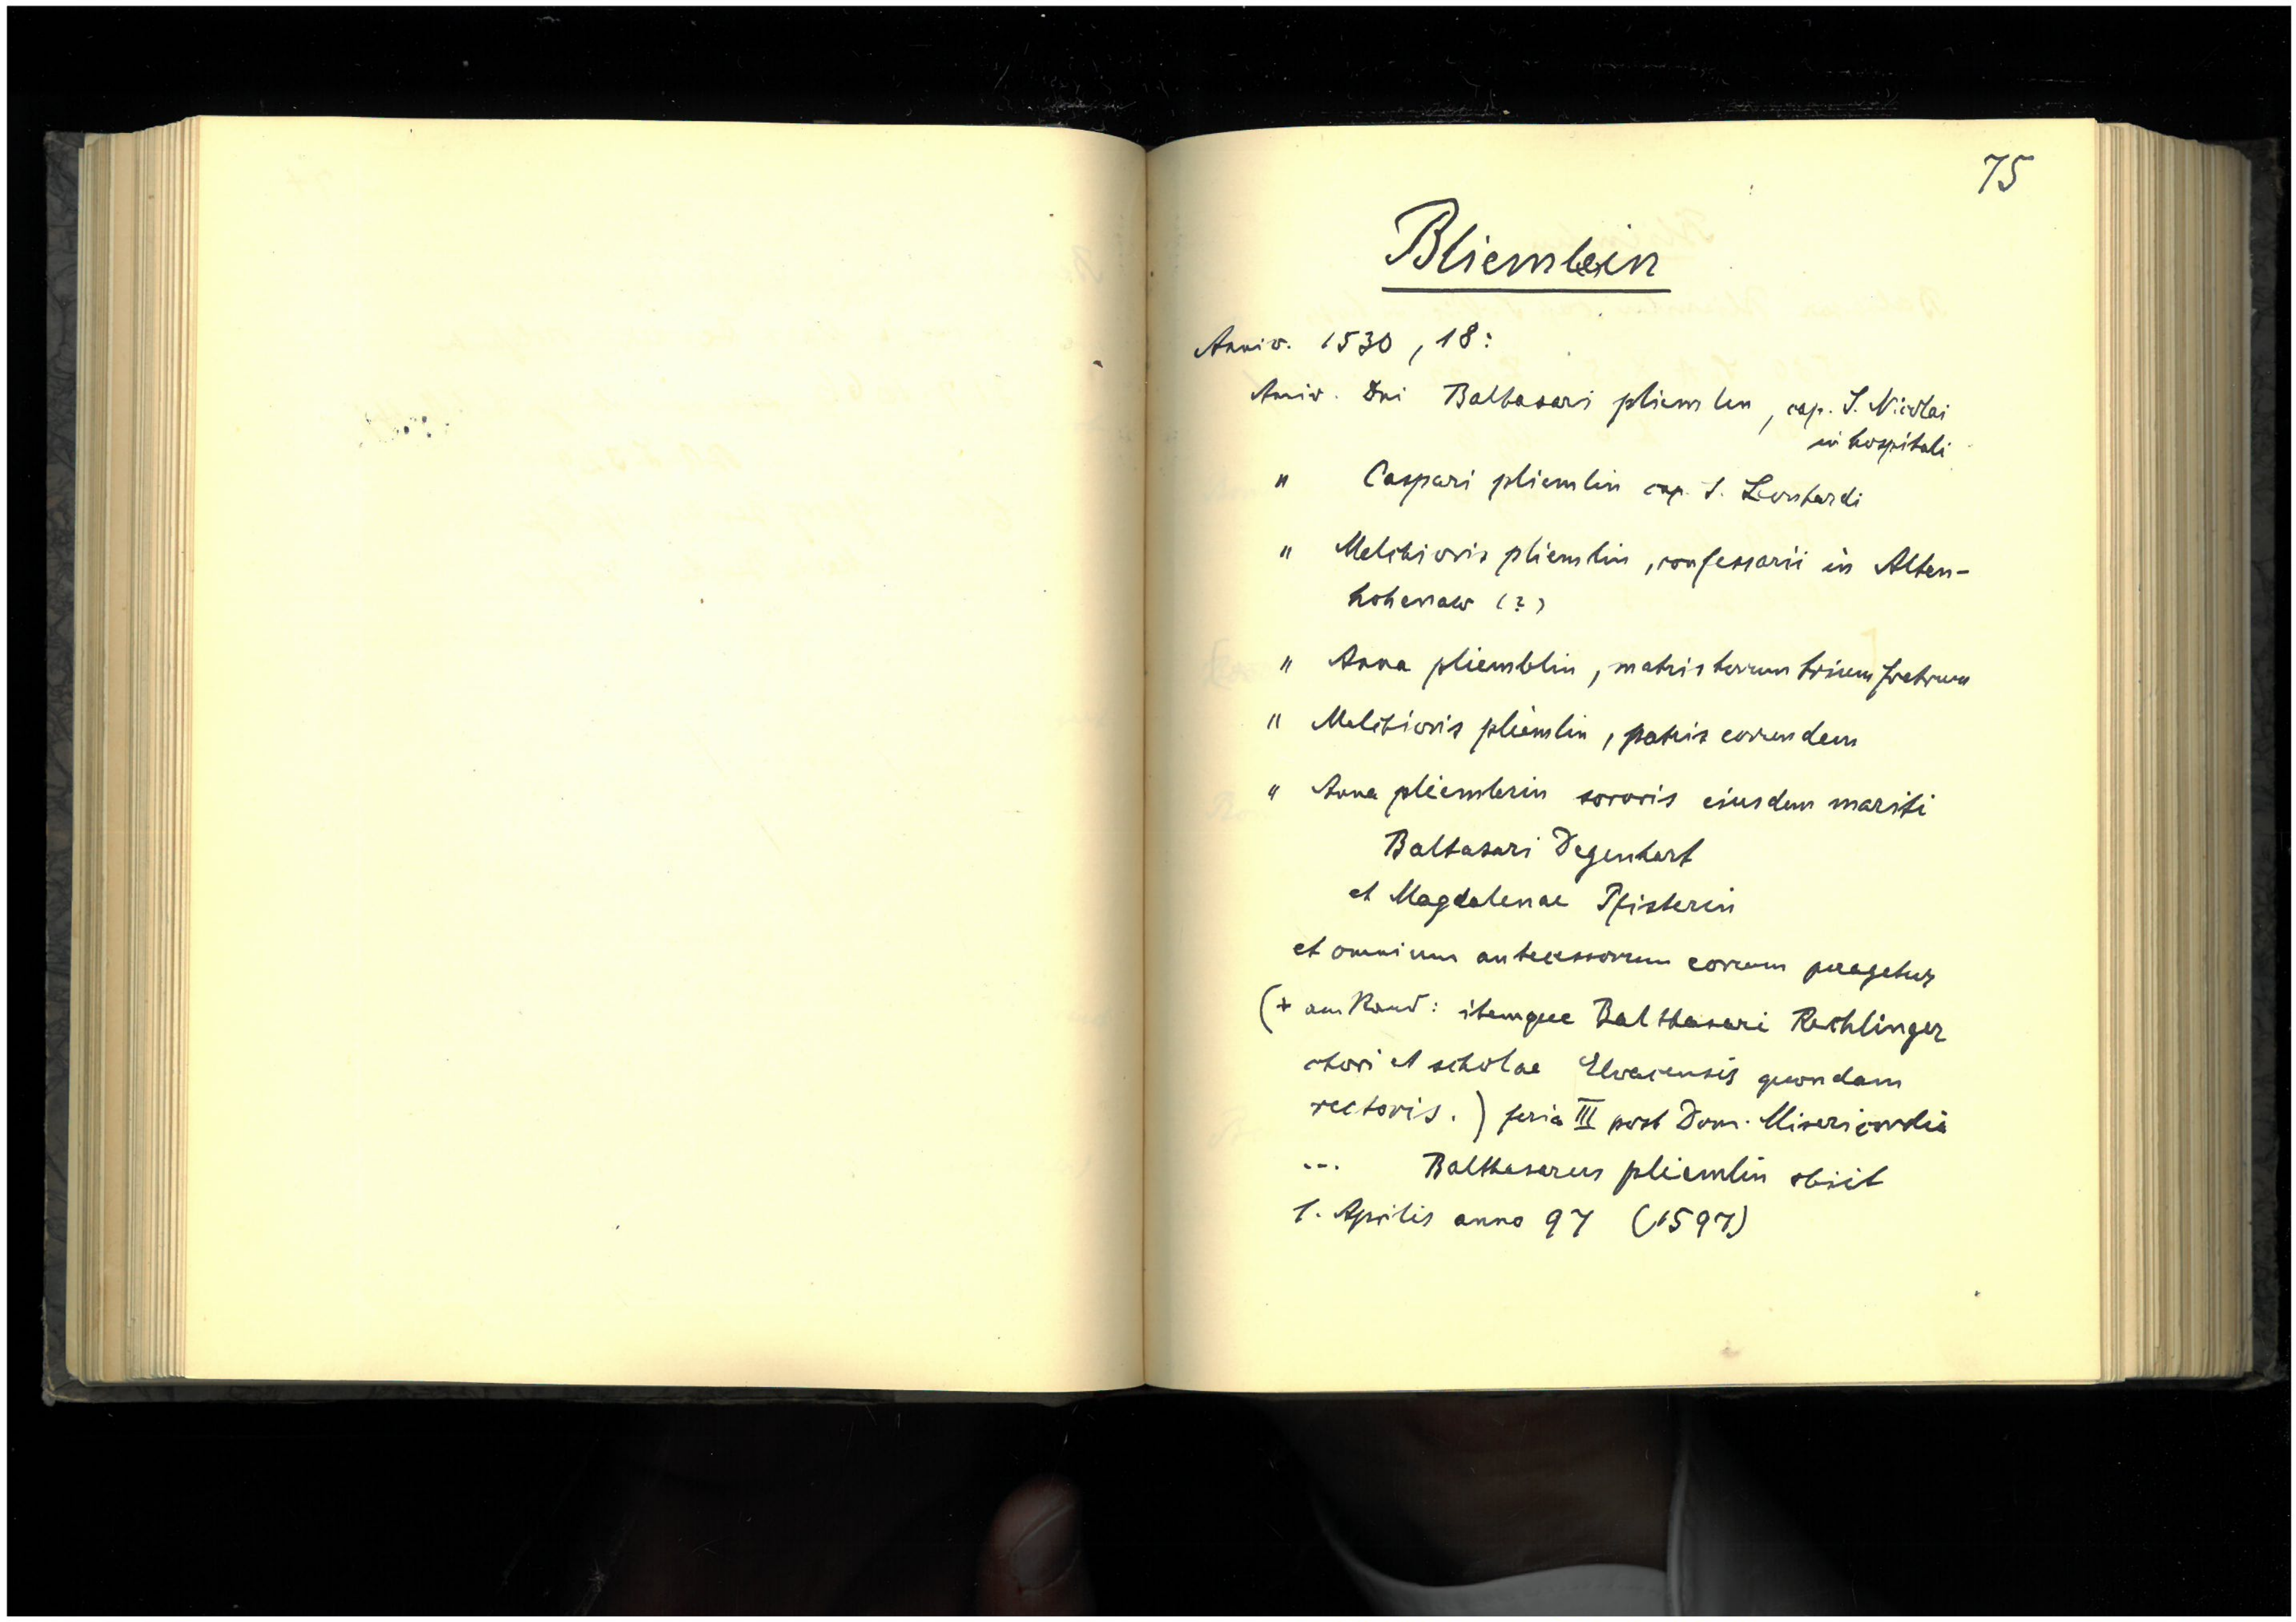 75
Bliemlein
Anniv. 1530, 18:
Anniv. Dni Balthasari pliemlen, cap. S. Nicolai
in hospitali
" Caspari pliemlin cap. S. Leonhardi
" Melchioris pliemlin, confessarii in Alten-
hohenaw (?)
" Anna pliemblin, matris horum trium fratrum
" Melchioris pliemlin, patris eorundem
" Anna pliemlerin sororis eiusdem mariti
Baltasari Degenhart
et Magdalenae Pfisterin
et omnium antecessorum eorum peragetur
(+ am Rand: itemque Balthasari Rechlinger
chori et scholae Elvacensis quondam
rectoris.) feria III post Dom. Misericordia
... Balthasarus pliemlin obiit
1. Aprilis anno 97 (1597)